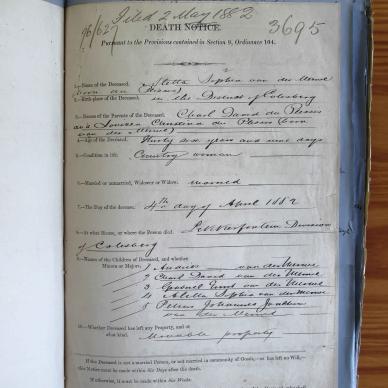 Filed 2 May 1882
96/627
3695
DEATH NOTICE.
Pursuant to the Provisions contained in Section 9, Ordinance 104.
1.—Name of the Deceased, Aletta Sophia van der Merwe
(born du Plessis)
2.—Birth-place of the Deceased, in the District of Colesberg
3.—Names of the Parents of the Deceased, Charl David du Plessis
and Christina du Plessis (born
van der Merwe)
4.—Age of the Deceased, Thirty six years and nine days
5.—Condition in life, Country woman
6.—Married or unmarried, Widower or Widow, married
7.—The Day of the decease, 4th day of April 1882
8.—At what House, or where the Person died, Division
of Colesberg
9.—Names of the Children of the Deceased, and whether
Minors or Majors,
1 van der Merwe
2 Charl David van der Merwe
3 van der Merwe
4 Aletta Sophia van der Merwe
5 Petrus Johannes
van der Merwe
10.—Whether Deceased has left any Property, and of
what kind, Movable property
If the Deceased is not a married Person, or not married in community of Goods,—or has left no Will,—
this Notice must be made within Six Days after the death.
If otherwise, it must be made within Six Weeks.